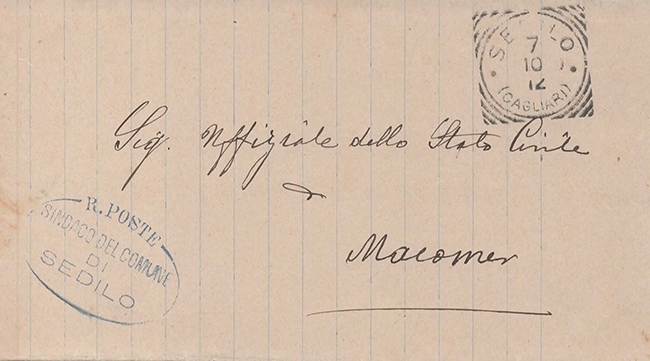 SEDILO
7
10
12
(CAGLIARI)
Sig. Uffiziale dello Stato Civile
Macomer
R. POSTE
SINDACO DEL COMUNE
DI
SEDILO